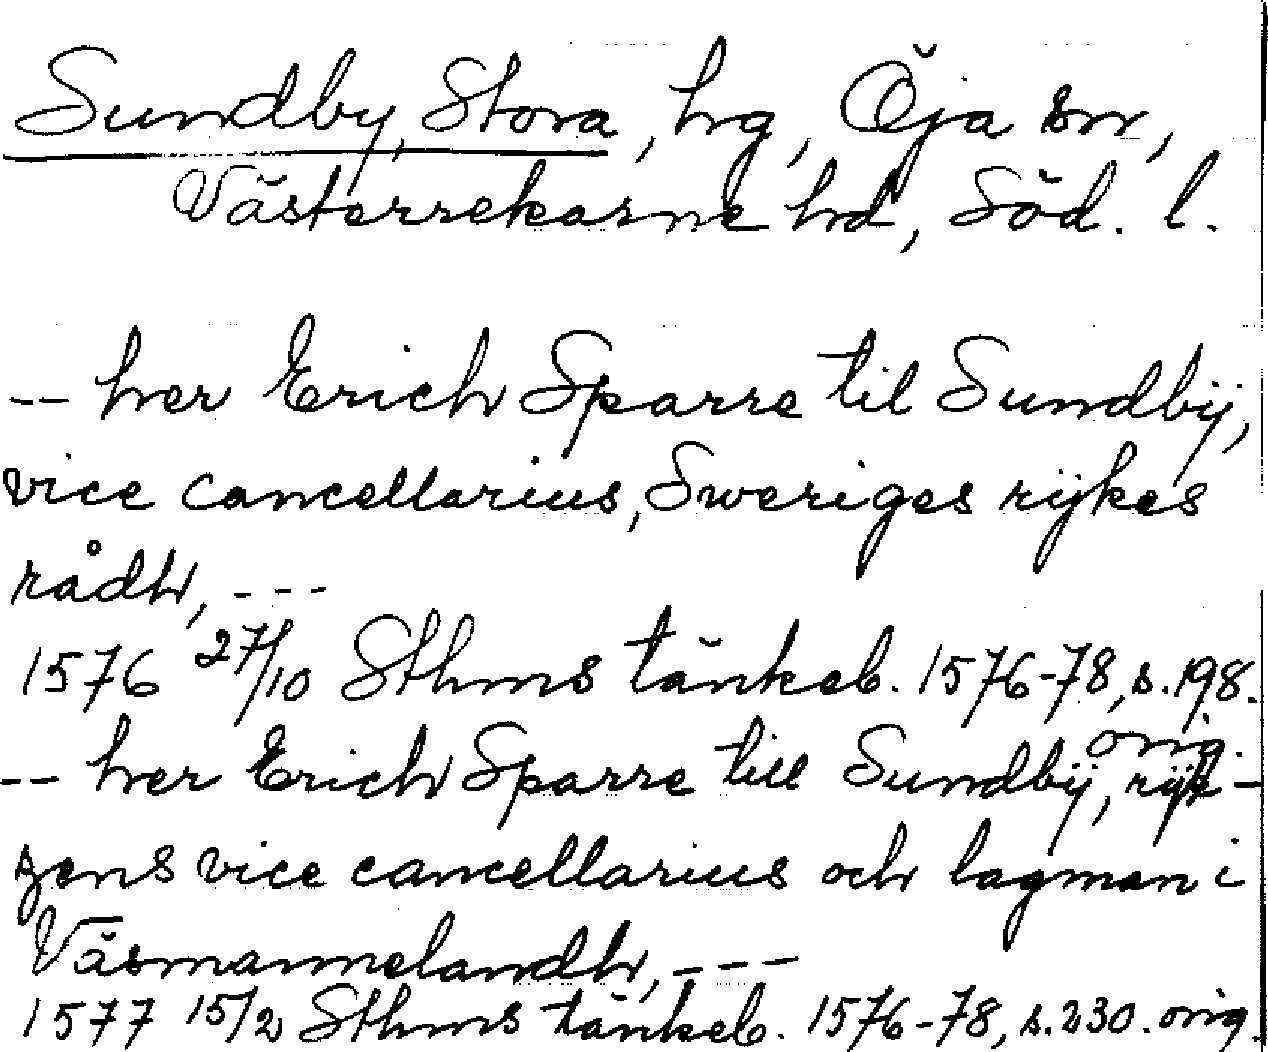 Sundby, Stora, hg, Öja sn,
Västerrekarne hd, Söd. l.
-- her Erich Sparre til Sundbÿ,
vice cancellarius, Sweriges rÿkes
rådh, ---
1576 27/10 Sthms tänkeb. 1576-78, s. 198.
orig.
-- her Erich Sparre till Sundbÿ, rÿk-
zens vice cancellarius och lagman i
Väsmannelandh, ---
1577 15/2 Sthms tänkeb. 1576-78, s. 230. orig.